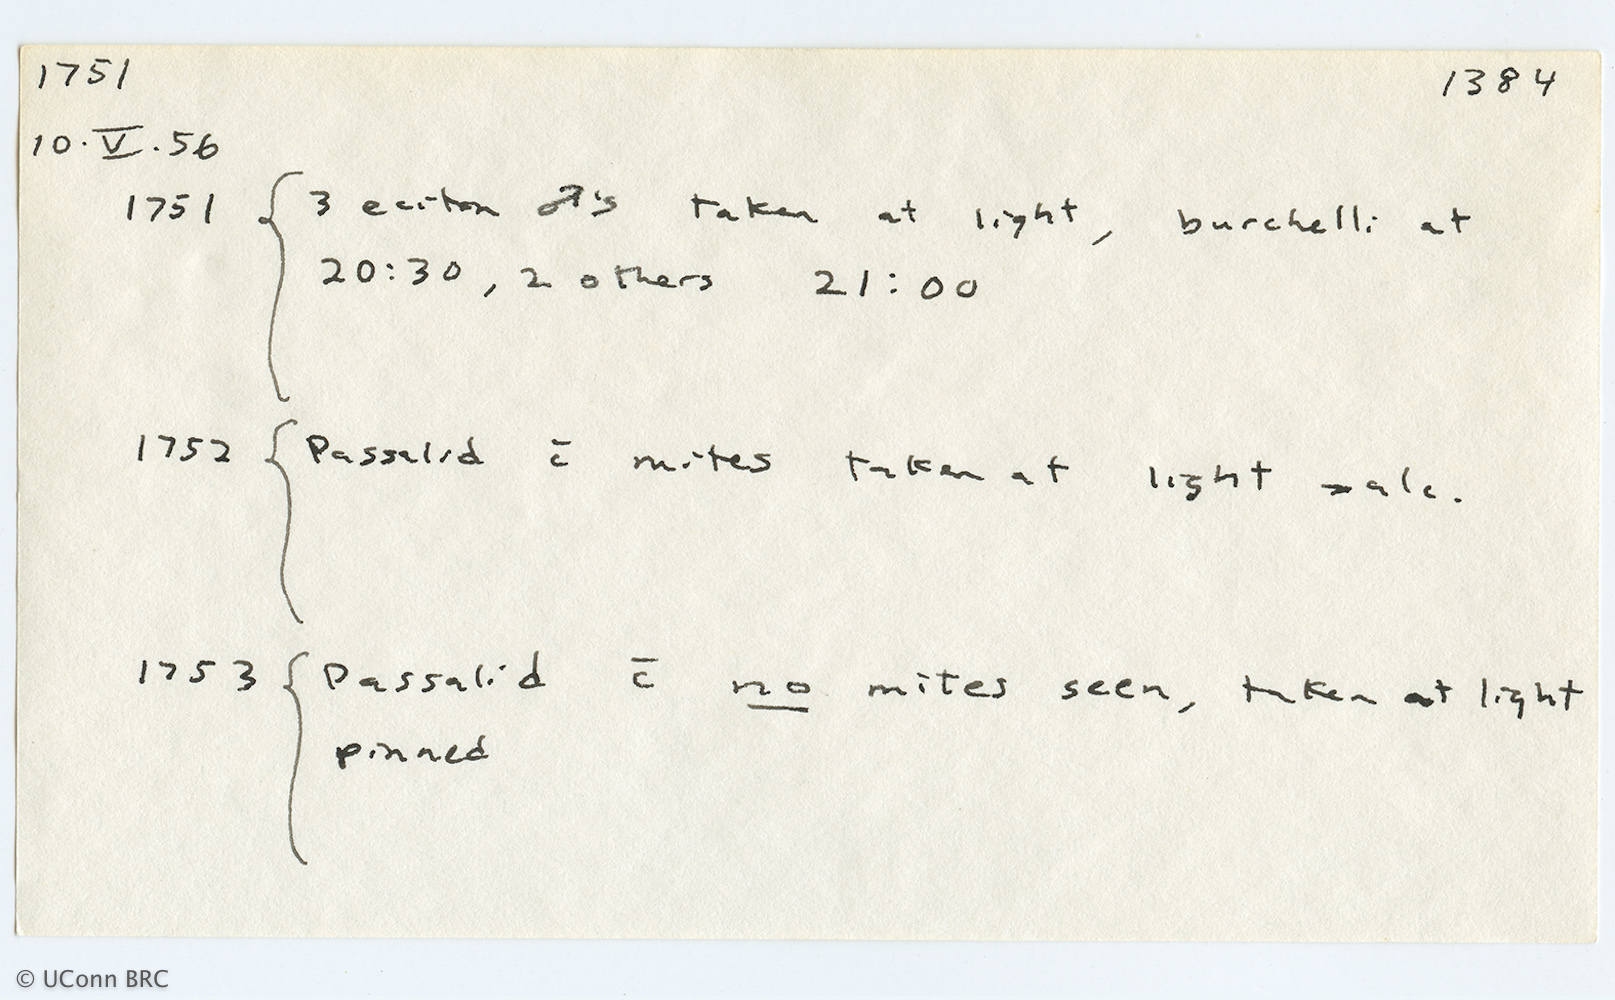 1751 1384
10.V.56
1751 { 3 eciton ♂'s taken at light, burchelli at
20:30, 2 others 21:00
1752 { Passalid c̄ mites taken at light → alc.
1753 { Passalid c̄ no mites seen, taken at light
pinned
© UConn BRC